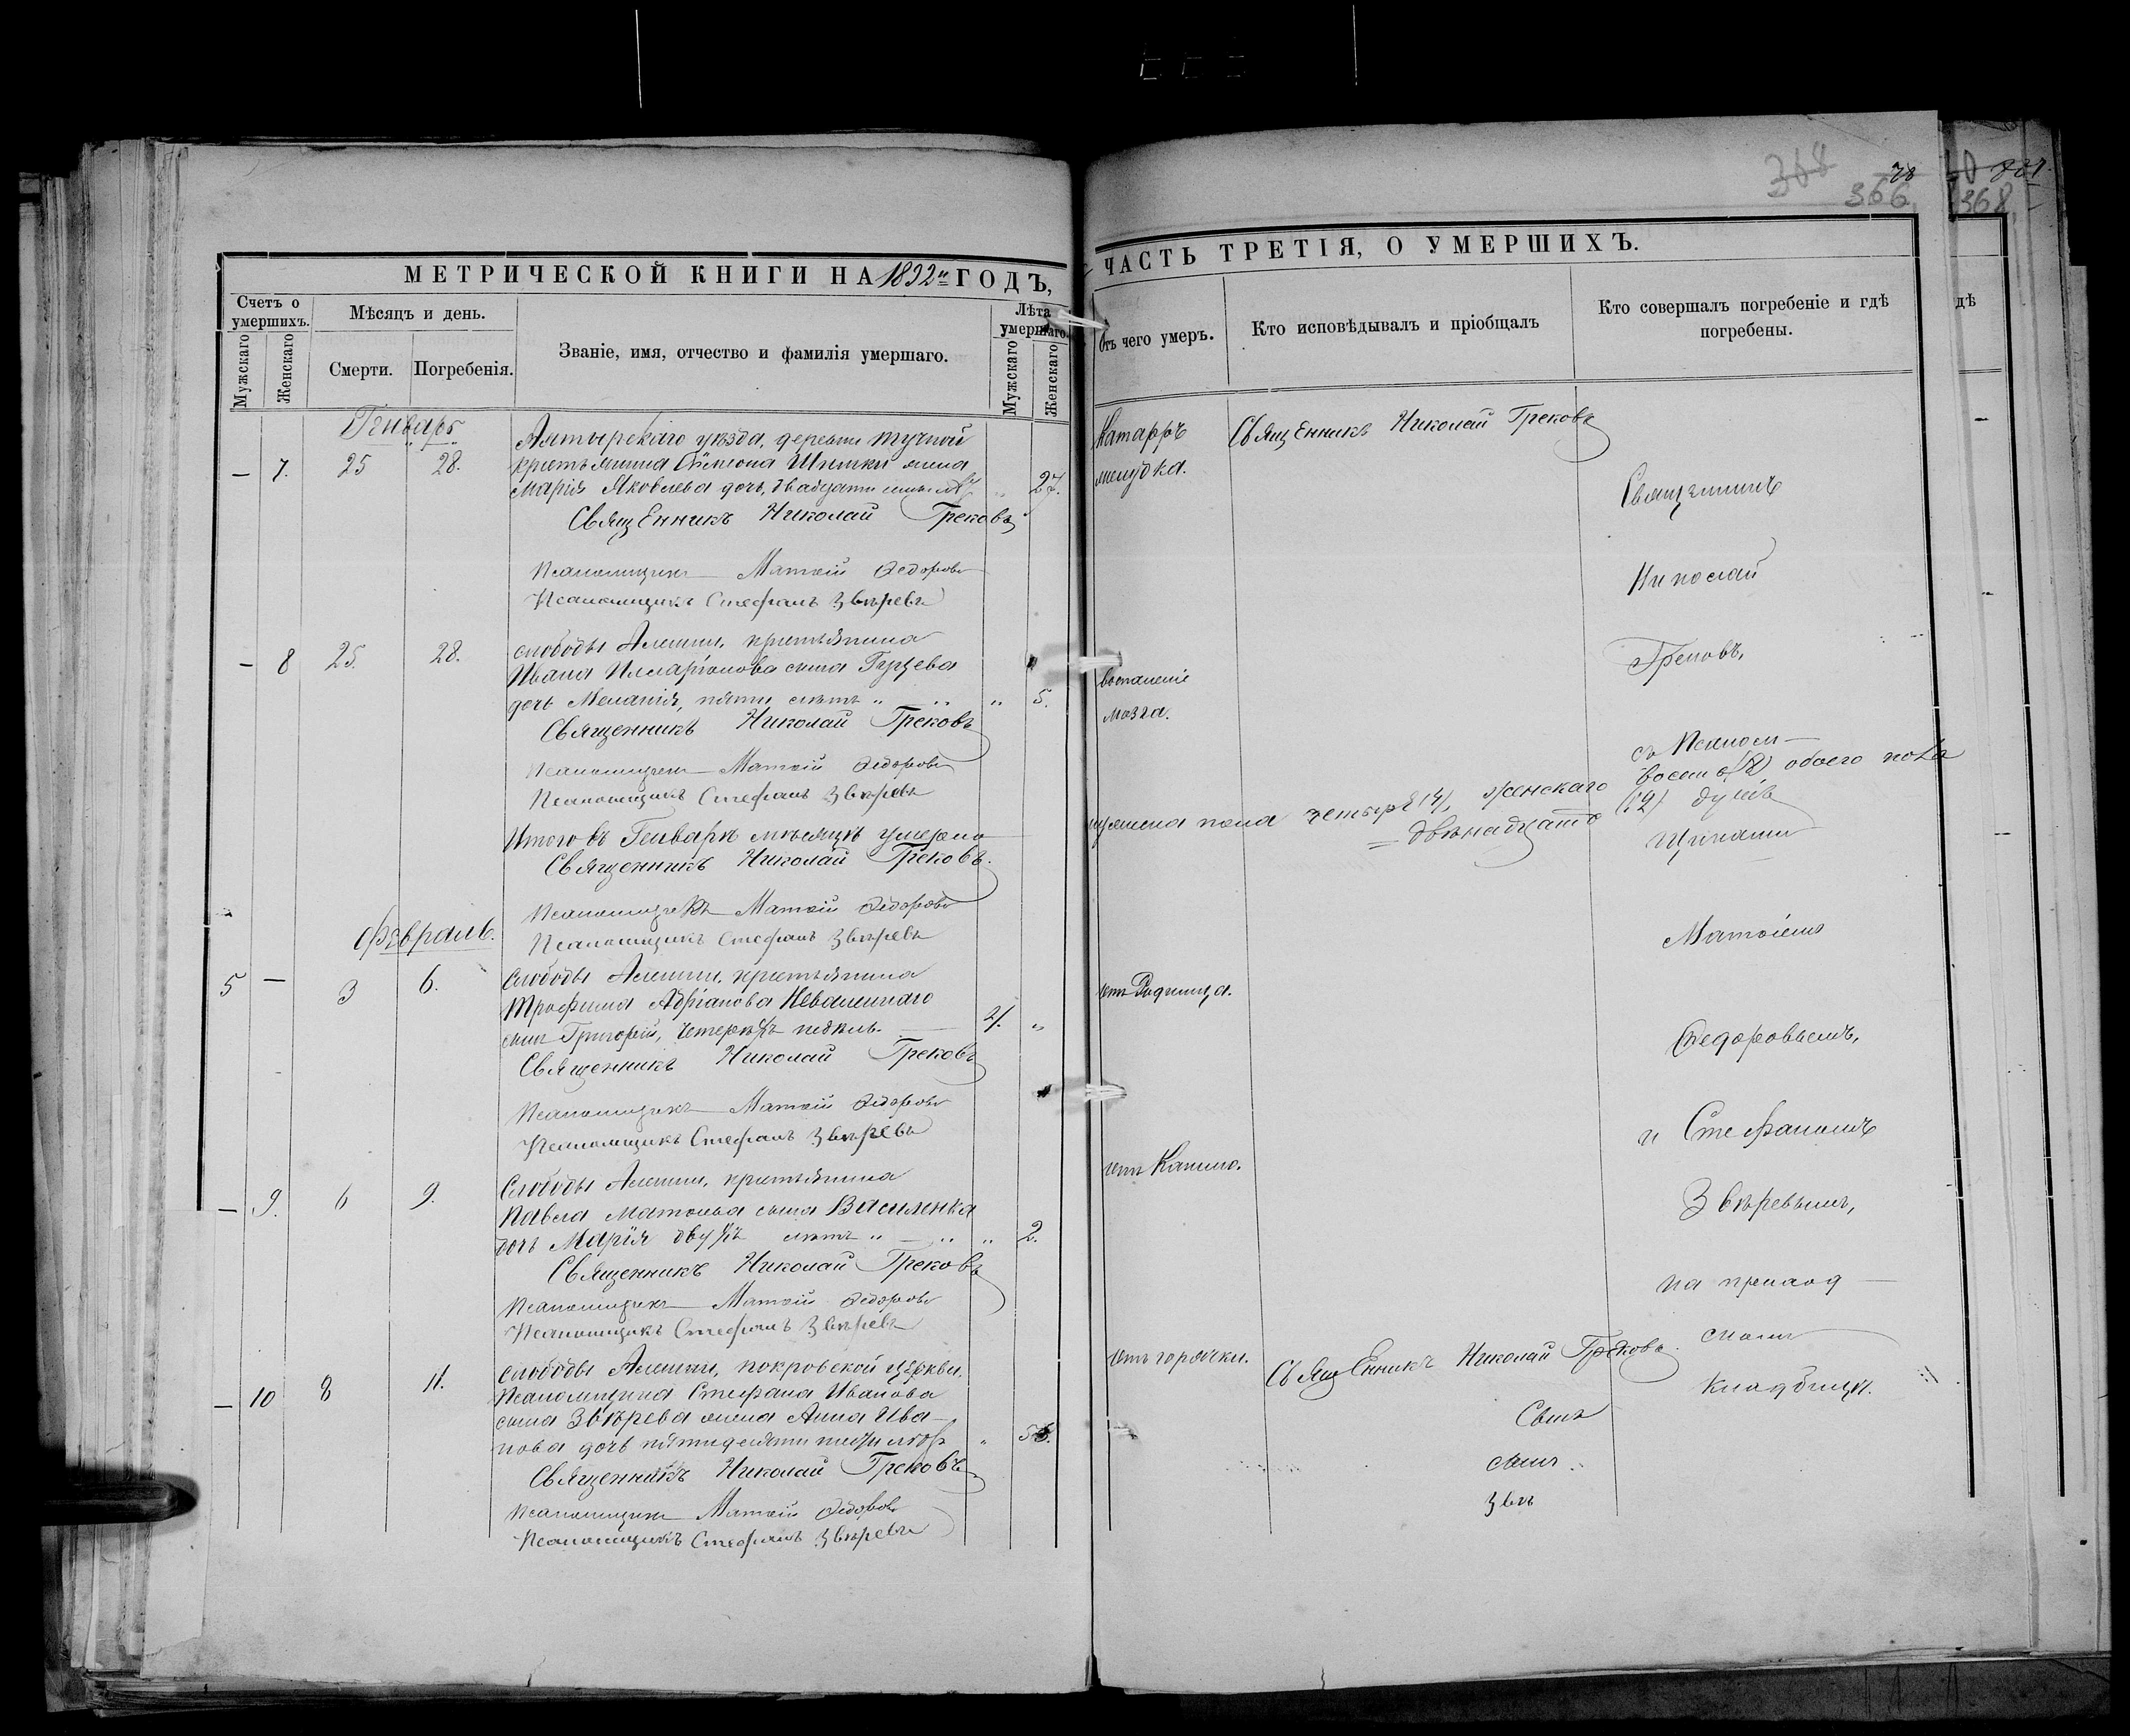 368
78
366
368
МЕТРИЧЕСКОЙ КНИГИ НА 1892й ГОДЪ,
Счетъ о умершихъ.
Мужскаго
Женскаго
Мѣсяцъ и день.
Смерти.
Погребенія.
Званіе, имя, отчество и фамилія умершаго.
Лѣта умершаго.
Мужскаго
Женскаго
Генварь
Ахтырскаго уѣзда, деревни Тучной
— 7. 25 28. крестьянина Сѵмеона жена
Марія Яковлева дочь, двадцати семи лѣтъ „ 27.
Священникъ Николай Грековъ
Псаломщикъ Матѳей Ѳедоровъ
Псаломщикъ Стефанъ Звѣревъ
слободы Алешни, крестьянина
— 8 25. 28. Ивана Илларіонова сына
дочь Меланія, пяти лѣтъ „ „ „ 5.
Священникъ Николай Грековъ
Псаломщикъ Матѳей Ѳедоровъ
Псаломщикъ Стефанъ Звѣревъ
Итого въ Генварѣ мѣсяцѣ умерло
Священникъ Николай Грековъ.
Псаломщикъ Матѳей Ѳедоровъ
Февраль.
Псаломщикъ Стефанъ Звѣревъ
слободы Алешни, крестьянина
5 — 3 6. Трофима Адріанова
сынъ Григорій, четырехъ недѣль. — „
Священникъ Николай Грековъ
Псаломщикъ Матѳей Ѳедоровъ
Псаломщикъ Стефанъ Звѣревъ
Слободы Алешни, крестьянина
— 9. 6 9. Павла сына Василенка
дочь Марія двухъ лѣтъ „ — „ „ 2.
Священникъ Николай Грековъ
Псаломщикъ Матѳей Ѳедоровъ
Псаломщикъ Стефанъ Звѣревъ
слободы Алешни, покровской церкви,
— 10 8 11. Псаломщика Стефана Иванова
сына Звѣрева жена Анна Ива-
нова дочь пятидесяти лѣтъ „
Священникъ Николай Грековъ
Псаломщикъ Матѳей Ѳедоровъ
Псаломщикъ Стефанъ Звѣревъ
ЧАСТЬ ТРЕТІЯ, О УМЕРШИХЪ.
Отъ чего умеръ.
Кто исповѣдывалъ и пріобщалъ
Кто совершалъ погребеніе и гдѣ погребены.
дѣ
Катарръ Священникъ Николай Грековъ
желудка.
Священникъ
Николай
Грековъ,
воспаленіе
мозга.
съ Псаломъ-
мужеска пола четыре (4), женскаго восемь (8) обоего пола
= двѣнадцать (12) душъ
щиками
Матѳіемъ
отъ Родимца.
Ѳедоровымъ,
и Стефаномъ
отъ Кашлю.
Звѣревымъ,
на приход-
скомъ
отъ горячки. Священникъ Николай Грековъ.
кладбищѣ.